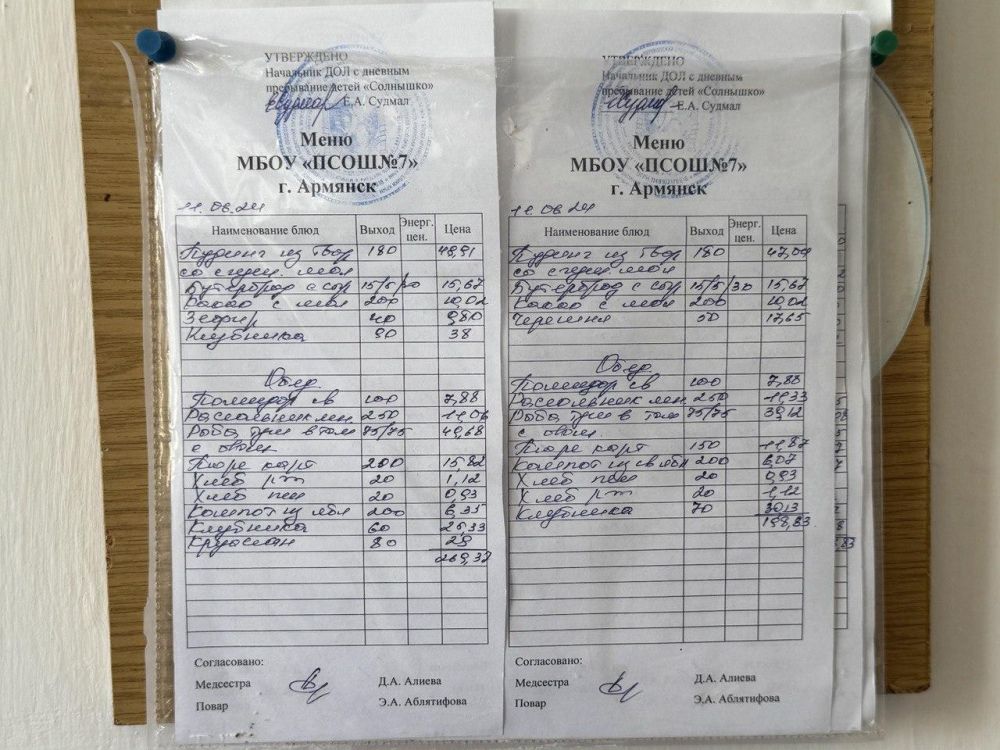 УТВЕРЖДЕНО
Начальник ДОЛ с дневным
пребывание детей «Солнышко»
Е.А. Судмал
Меню
МБОУ «ПСОШ№7»
г. Армянск
11.06.24
Наименование блюд Выход Энерг. цен. Цена
Пудинг из твор 180 48,91
со сгущ. мол
Бутерброд с сыр 15/5/30 15,67
Какао с мол 200 10,02
Зефир 40 9,80
Клубника 90 38
Обед
Помидор св 100 7,88
Рассольник лен 250 11,06
Рыба туш в том 75/75 49,68
с овощ
Пюре карт 200 15,82
Хлеб рж 20 1,12
Хлеб пш 20 0,93
Компот из ябл 200 6,35
Клубника 60 25,33
Круассан 80 29
269,37
Согласовано:
Медсестра Д.А. Алиева
Повар Э.А. Аблятифова
УТВЕРЖДЕНО
Начальник ДОЛ с дневным
пребывание детей «Солнышко»
Е.А. Судмал
Меню
МБОУ «ПСОШ№7»
г. Армянск
11.06.24
Наименование блюд Выход Энерг. цен. Цена
Пудинг из твор 180 47,09
со сгущ. мол
Бутерброд с сыр 15/5/30 15,67
Какао с мол 200 10,02
Черешня 50 17,65
Обед
Помидор св 100 7,88
Рассольник лен 250 11,33
Рыба туш в том 75/75 39,12
с овощ
Пюре карт 150 11,87
Компот из св ябл 200 6,07
Хлеб пш 20 0,93
Хлеб рж 20 1,12
Клубника 70 30,13
198,83
Согласовано:
Медсестра Д.А. Алиева
Повар Э.А. Аблятифова